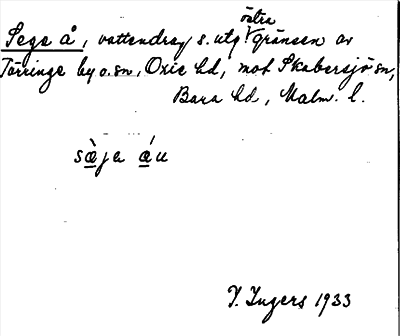 Sege å, vattendrag s. utg. östra gränsen av
Törringe by o. sn, Oxie hd, mot Skabersjö sn,
Bara hd, Malm. l.
sæ̀ja ǽu
I. Ingers 1933